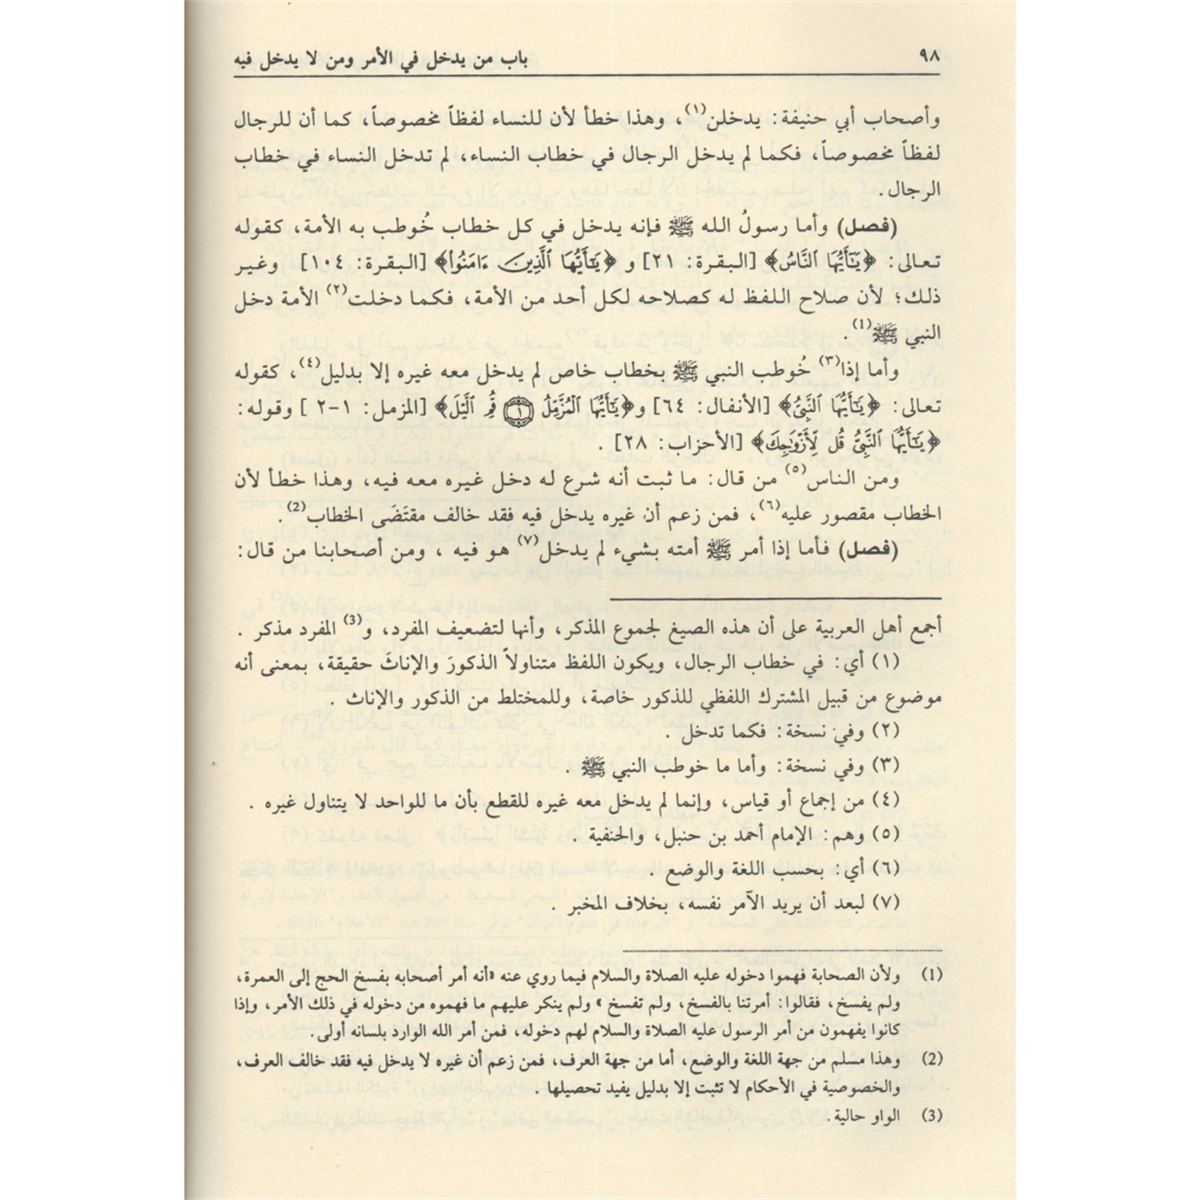 ٩٨ باب من يدخل في الأمر ومن لا يدخل فيه
وأصحاب أبي حنيفة: يدخلن(١)، وهذا خطأ لأن للنساء لفظاً مخصوصاً، كما أن للرجال
لفظاً مخصوصاً، فكما لم يدخل الرجال في خطاب النساء، لم تدخل النساء في خطاب
الرجال.
(فصل) وأما رسولُ الله ﷺ فإنه يدخل في كل خطاب خُوطب به الأمة، كقوله
تعالى: ﴿يَٰٓأَيُّهَا ٱلنَّاسُ﴾ [البقرة: ٢١] و ﴿يَٰٓأَيُّهَا ٱلَّذِينَ ءَامَنُواْ﴾ [البقرة: ١٠٤] وغير
ذلك؛ لأن صلاح اللفظ له كصلاحه لكل أحد من الأمة، فكما دخلت(٢) الأمة دخل
النبي ﷺ(1).
وأما إذا(٣) خُوطب النبي ﷺ بخطاب خاص لم يدخل معه غيره إلا بدليل(٤)، كقوله
تعالى: ﴿يَٰٓأَيُّهَا ٱلنَّبِيُّ﴾ [الأنفال: ٦٤] و﴿يَٰٓأَيُّهَا ٱلْمُزَّمِّلُ ۝١ قُمِ ٱلَّيْلَ﴾ [المزمل: ١-٢] وقوله:
﴿يَٰٓأَيُّهَا ٱلنَّبِيُّ قُل لِّأَزْوَٰجِكَ﴾ [الأحزاب: ٢٨].
ومن الناس(٥) من قال: ما ثبت أنه شرع له دخل غيره معه فيه، وهذا خطأ لأن
الخطاب مقصور عليه(٦)، فمن زعم أن غيره يدخل فيه فقد خالف مقتَضَى الخطاب(2).
(فصل) فأما إذا أمر ﷺ أمته بشيء لم يدخل(٧) هو فيه، ومن أصحابنا من قال:
أجمع أهل العربية على أن هذه الصيغ لجموع المذكر، وأنها لتضعيف المفرد، و(3) المفرد مذكر.
(١) أي: في خطاب الرجال، ويكون اللفظ متناولاً الذكورَ والإناثَ حقيقة، بمعنى أنه
موضوع من قبيل المشترك اللفظي للذكور خاصة، وللمختلط من الذكور والإناث.
(٢) وفي نسخة: فكما تدخل.
(٣) وفي نسخة: وأما ما خوطب النبي ﷺ.
(٤) من إجماع أو قياس، وإنما لم يدخل معه غيره للقطع بأن ما للواحد لا يتناول غيره.
(٥) وهم: الإمام أحمد بن حنبل، والحنفية.
(٦) أي: بحسب اللغة والوضع.
(٧) لبعد أن يريد الآمر نفسه، بخلاف المخبر.
(1) ولأن الصحابة فهموا دخوله عليه الصلاة والسلام فيما روي عنه «أنه أمر أصحابه بفسخ الحج إلى العمرة،
ولم يفسخ، فقالوا: أمرتنا بالفسخ، ولم تفسخ» ولم ينكر عليهم ما فهموه من دخوله في ذلك الأمر، وإذا
كانوا يفهمون من أمر الرسول عليه الصلاة والسلام لهم دخوله، فمن أمر الله الوارد بلسانه أولى.
(2) وهذا مسلم من جهة اللغة والوضع، أما من جهة العرف، فمن زعم أن غيره لا يدخل فيه فقد خالف العرف،
والخصوصية في الأحكام لا تثبت إلا بدليل يفيد تحصيلها.
(3) الواو حالية.